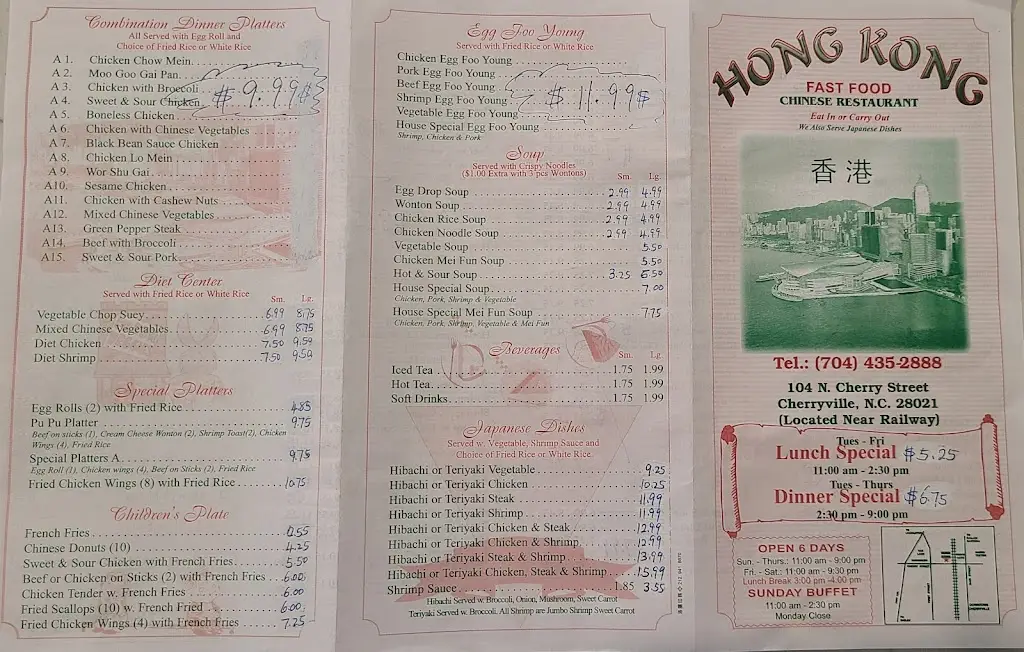 Combination Dinner Platters
All Served with Egg Roll and
Choice of Fried Rice or White Rice
A 1. Chicken Chow Mein
A 2. Moo Goo Gai Pan
A 3. Chicken with Broccoli
A 4. Sweet & Sour Chicken
$9.99$
A 5. Boneless Chicken
A 6. Chicken with Chinese Vegetables
A 7. Black Bean Sauce Chicken
A 8. Chicken Lo Mein
A 9. Wor Shu Gai
A10. Sesame Chicken
A11. Chicken with Cashew Nuts
A12. Mixed Chinese Vegetables
A13. Green Pepper Steak
A14. Beef with Broccoli
A15. Sweet & Sour Pork
Diet Center
Served with Fried Rice or White Rice
Sm. Lg.
Vegetable Chop Suey 6.99 8.75
Mixed Chinese Vegetables 6.99 8.75
Diet Chicken 7.50 9.59
Diet Shrimp 7.50 9.59
Special Platters
Egg Rolls (2) with Fried Rice 4.85
Pu Pu Platter 9.75
Beef on sticks (1), Cream Cheese Wonton (2), Shrimp Toast(2), Chicken
Wings (4), Fried Rice
Special Platters A 9.75
Egg Roll (1), Chicken wings (4), Beef on Sticks (2), Fried Rice
Fried Chicken Wings (8) with Fried Rice 10.75
Children's Plate
French Fries
Chinese Donuts (10) 4.25
Sweet & Sour Chicken with French Fries 5.50
Beef or Chicken on Sticks (2) with French Fries 6.00
Chicken Tender w. French Fries 6.00
Fried Scallops (10) w. French Fried 6.00
Fried Chicken Wings (4) with French Fries 7.25
Egg Foo Young
Served with Fried Rice or White Rice
Chicken Egg Foo Young
Pork Egg Foo Young
Beef Egg Foo Young
$11.99$
Shrimp Egg Foo Young
Vegetable Egg Foo Young
House Special Egg Foo Young
Shrimp, Chicken & Pork
Soup
Served with Crispy Noodles
($1.00 Extra with 3 pcs Wontons)
Sm. Lg.
Egg Drop Soup 2.99 4.99
Wonton Soup 2.99 4.99
Chicken Rice Soup 2.99 4.99
Chicken Noodle Soup 2.99 4.99
Vegetable Soup 5.50
Chicken Mei Fun Soup 5.50
Hot & Sour Soup 3.25 5.50
House Special Soup 7.00
Chicken, Pork, Shrimp & Vegetable
House Special Mei Fun Soup 7.75
Chicken, Pork, Shrimp, Vegetable & Mei Fun
Beverages
Sm. Lg.
Iced Tea 1.75 1.99
Hot Tea 1.75 1.99
Soft Drinks 1.75 1.99
Japanese Dishes
Served w. Vegetable, Shrimp Sauce and
Choice of Fried Rice or White Rice.
Hibachi or Teriyaki Vegetable 9.25
Hibachi or Teriyaki Chicken 10.25
Hibachi or Teriyaki Steak 11.99
Hibachi or Teriyaki Shrimp 11.99
Hibachi or Teriyaki Chicken & Steak 12.99
Hibachi or Teriyaki Chicken & Shrimp 12.99
Hibachi or Teriyaki Steak & Shrimp 13.99
Hibachi or Teriyaki Chicken, Steak & Shrimp 15.99
Shrimp Sauce 1.85 3.55
Hibachi Served w. Broccoli, Onion, Mushroom, Sweet Carrot
Teriyaki Served w. Broccoli. All Shrimp are Jumbo Shrimp Sweet Carrot
HONG KONG
FAST FOOD
CHINESE RESTAURANT
Eat In or Carry Out
We Also Serve Japanese Dishes
香港
Tel.: (704) 435-2888
104 N. Cherry Street
Cherryville, N.C. 28021
(Located Near Railway)
Tues - Fri
Lunch Special $5.25
11:00 am - 2:30 pm
Tues - Thurs
Dinner Special $6.75
2:30 pm - 9:00 pm
OPEN 6 DAYS
Sun. - Thurs.: 11:00 am - 9:00 pm
Fri. - Sat.: 11:00 am - 9:30 pm
Lunch Break 3:00 pm -4:00 pm
SUNDAY BUFFET
11:00 am - 2:30 pm
Monday Close